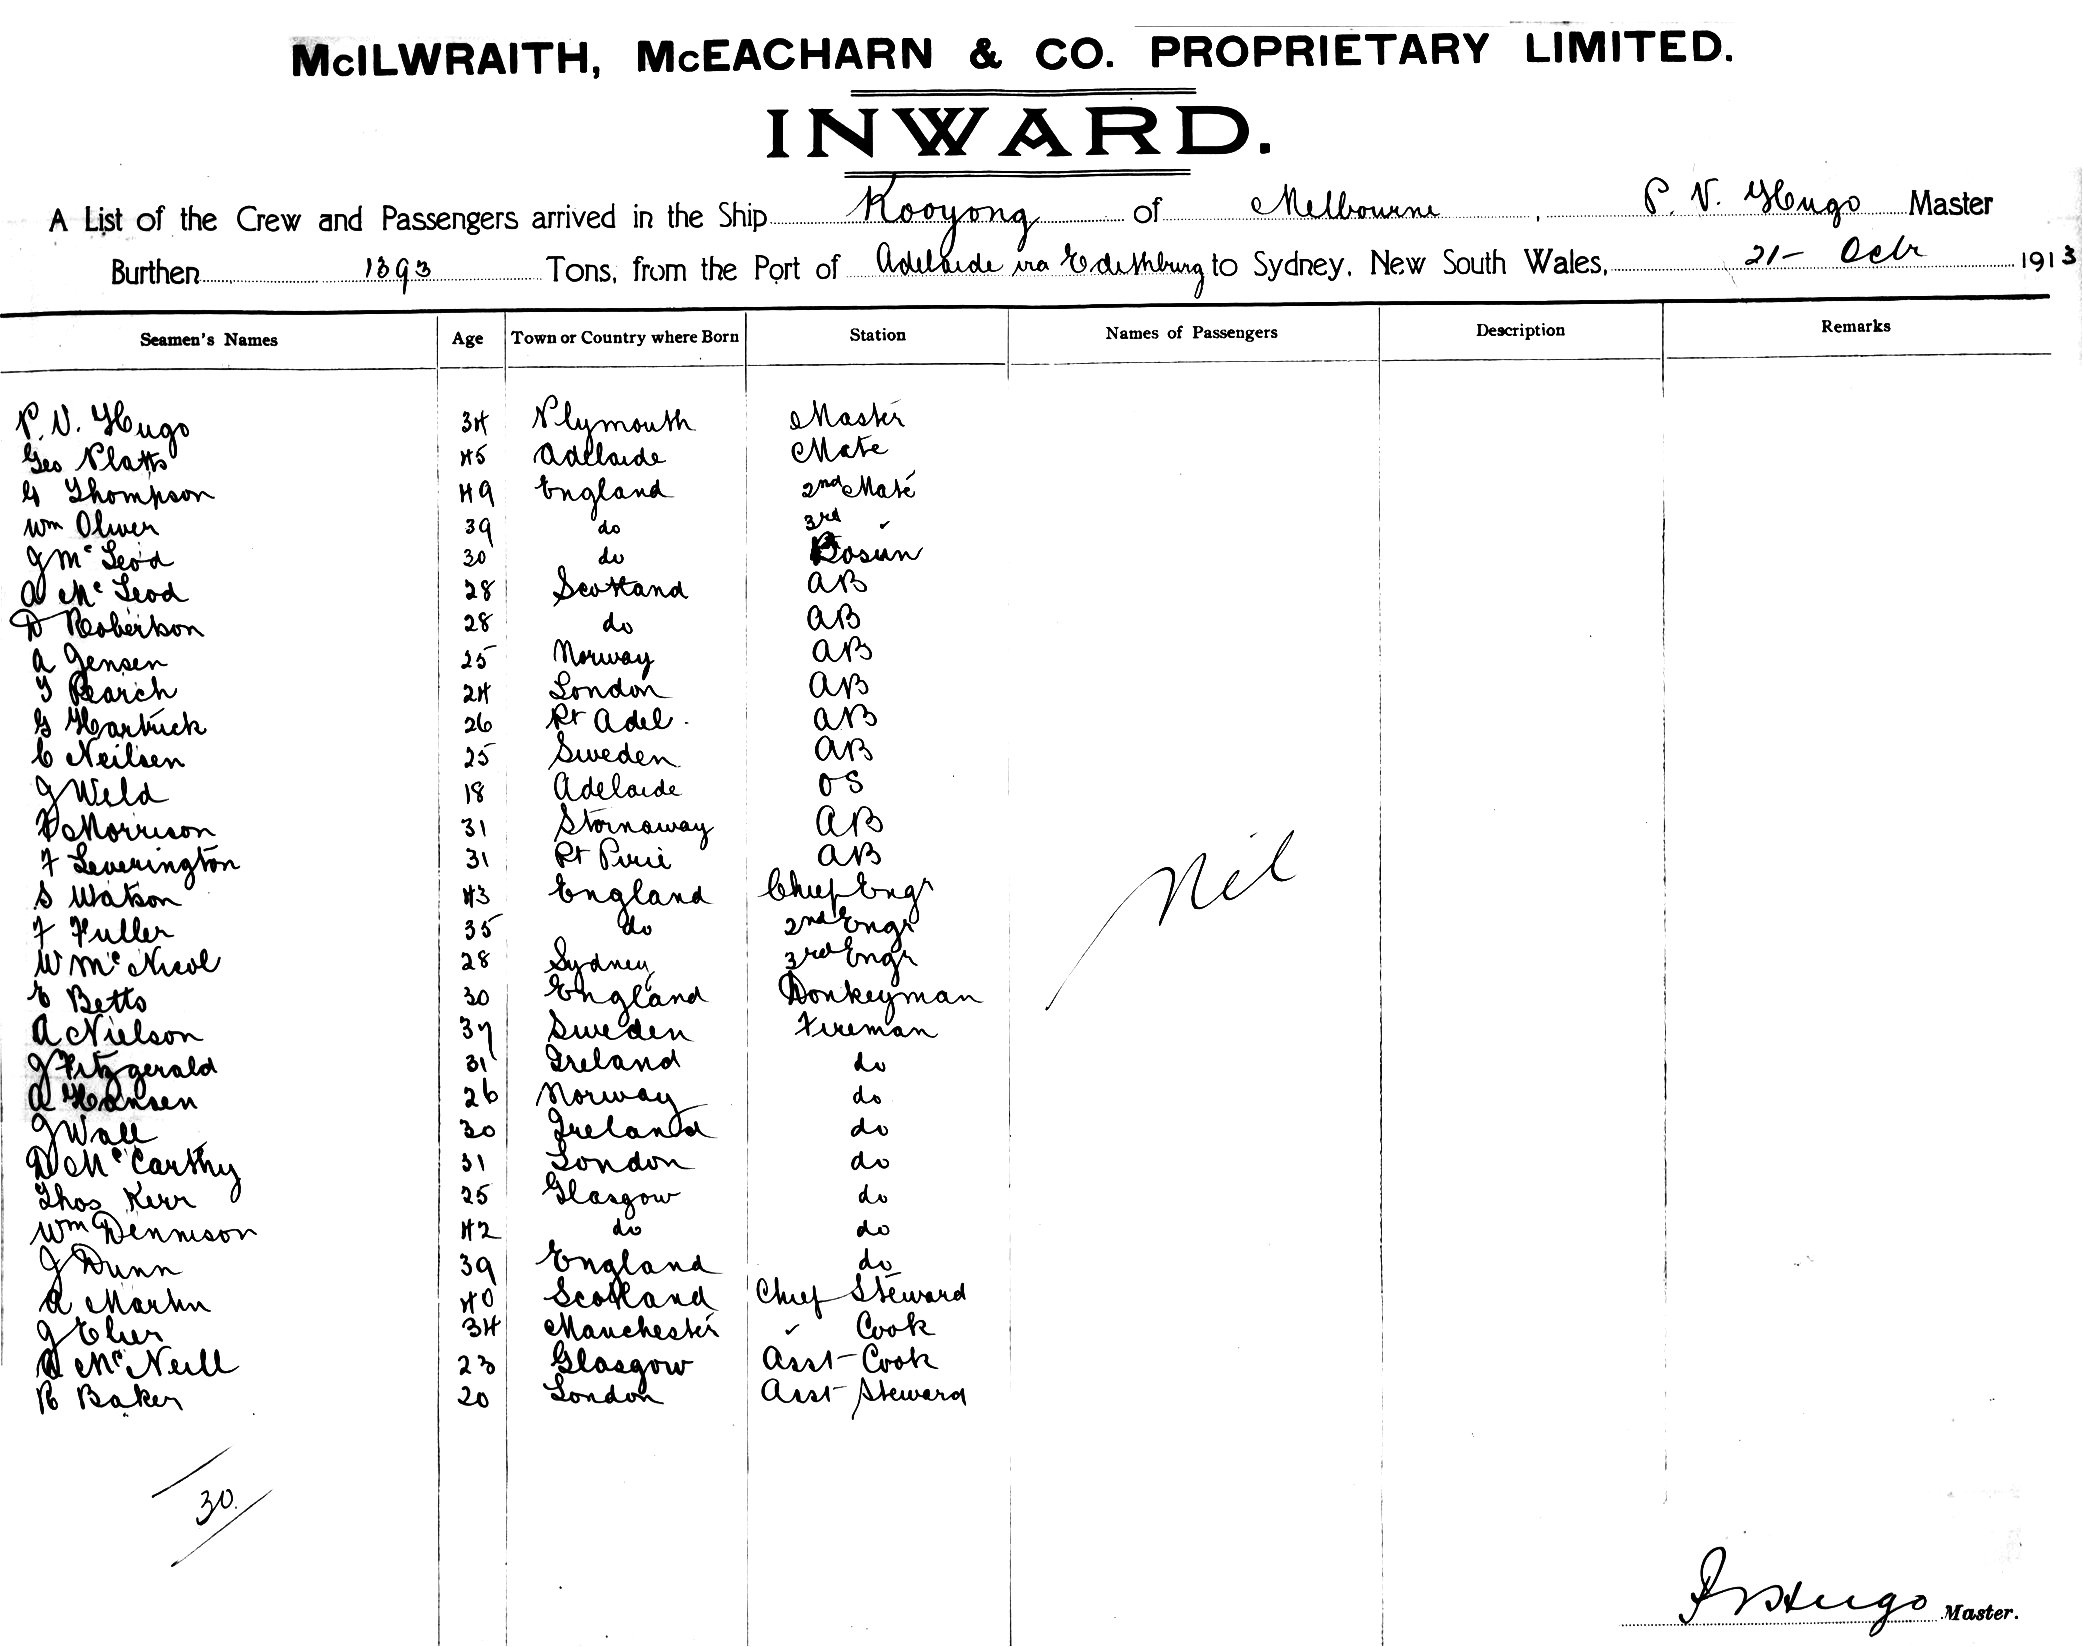 McILWRAITH, McEACHARN & CO. PROPRIETARY LIMITED.
INWARD.
A List of the Crew and Passengers arrived in the Ship Kooyong of Melbourne, P. V. Hugo Master
Burthen 1393 Tons, from the Port of Adelaide via Edithburg to Sydney, New South Wales, 21- Octr 1913
Seamen's Names Age Town or Country where Born Station Names of Passengers Description Remarks
P. V. Hugo 34 Plymouth Master
Geo Platts 45 Adelaide Mate
G Thompson 49 England 2nd Mate
Wm Oliver 39 do 3rd "
J McLeod 30 do Bosun
A McLeod 28 Scotland AB
D Robertson 28 do AB
A Jensen 25 Norway AB
T Pearch 24 London AB
G Hartrick 26 Pt Adel. AB
C Neilsen 25 Sweden AB
J Weld 18 Adelaide OS
D Morrison 31 Stornaway AB
F Leverington 31 Pt Pirie AB
S Watson 43 England Chief Engr
F Fuller 35 do 2nd Engr
W McNicol 28 Sydney 3rd Engr
E Betts 30 England Donkeyman
A Nielson 37 Sweden Fireman
J Fitzgerald 31 Ireland do
A Hansen 26 Norway do
J Wall 30 Ireland do
D McCarthy 31 London do
Thos Kerr 25 Glasgow do
Wm Dennison 42 do do
J Dunn 39 England do
A Martin 40 Scotland Chief Steward
J 34 Manchester " Cook
A McNeill 23 Glasgow Asst Cook
R Baker 20 London Asst Steward
Nil
30.
P V Hugo Master.